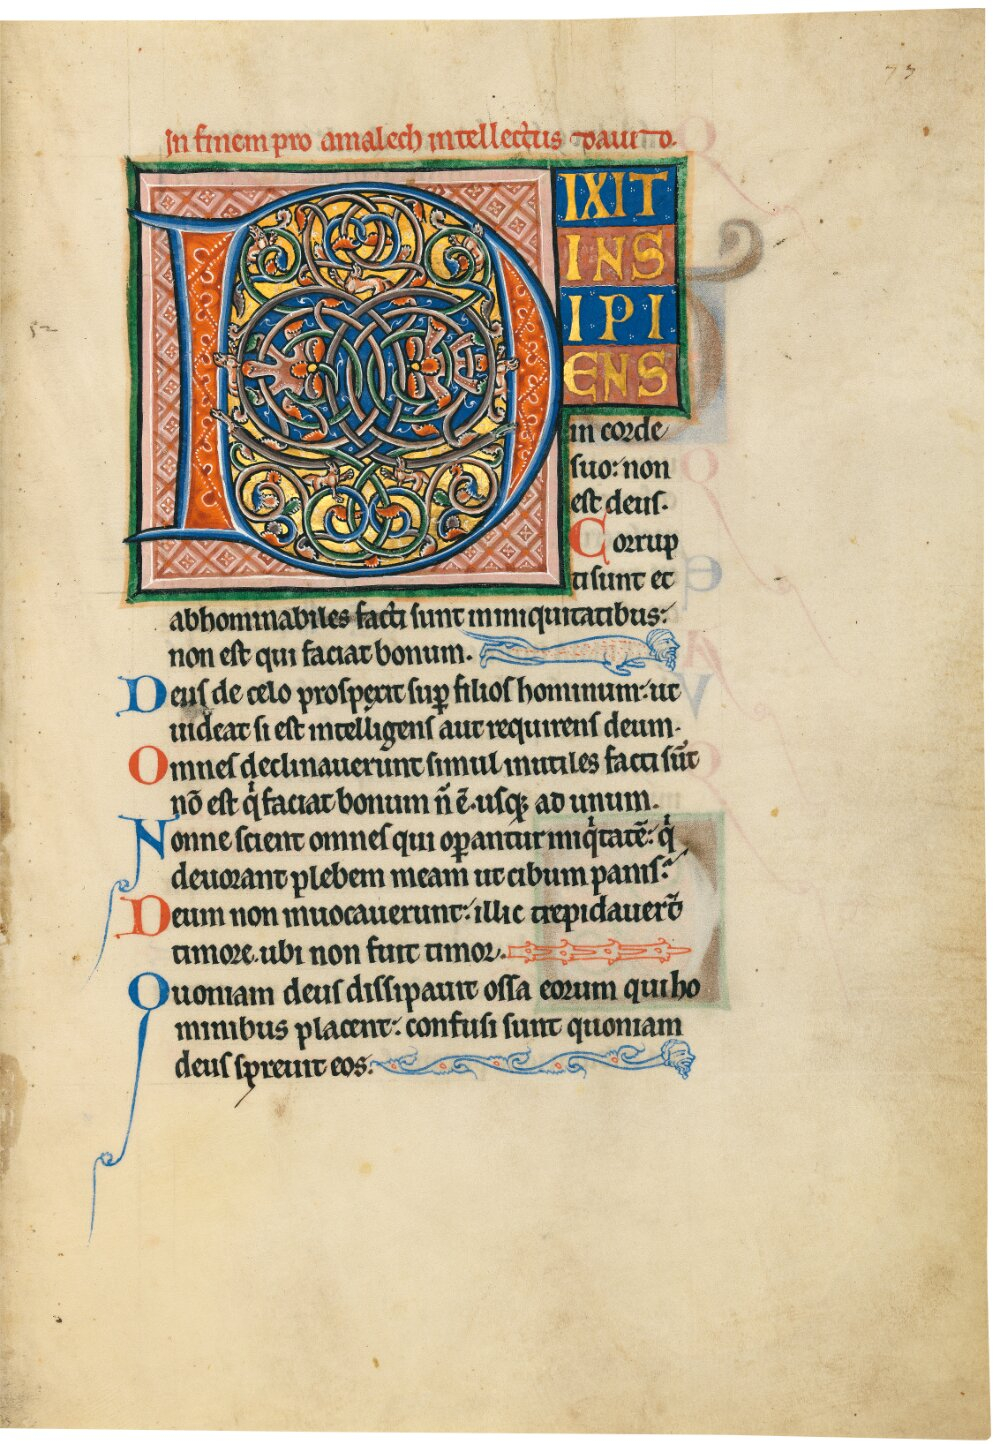 73
In finem pro amalech intellectus dauid.
D IXIT
INS
IPI
ENS
in corde
suo: non
est deus.
Corrup
ti sunt et
abhominabiles facti sunt in iniquitatibus:
non est qui faciat bonum.
52
Deus de celo prosperit sup̱ filios hominum: ut
uideat si est intelligens aut requirens deum.
Omnes declinauerunt simul inutiles facti sūt
nō est q̇ faciat bonum n̄ ē usq; ad unum.
Nonne scient omnes qui op̱antur iniq̇tatē: q̇
deuorant plebem meam ut cibum panis:
Deum non inuocauerunt: illic trepidauer̄t
timore. ubi non fuit timor.
Quoniam deus dissipauit ossa eorum qui ho
minibus placent: confusi sunt quoniam
deus spreuit eos: